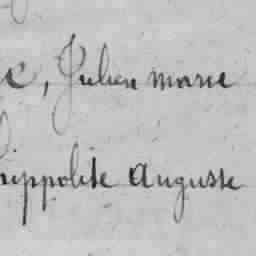 c, Julien marie
hippolite Auguste